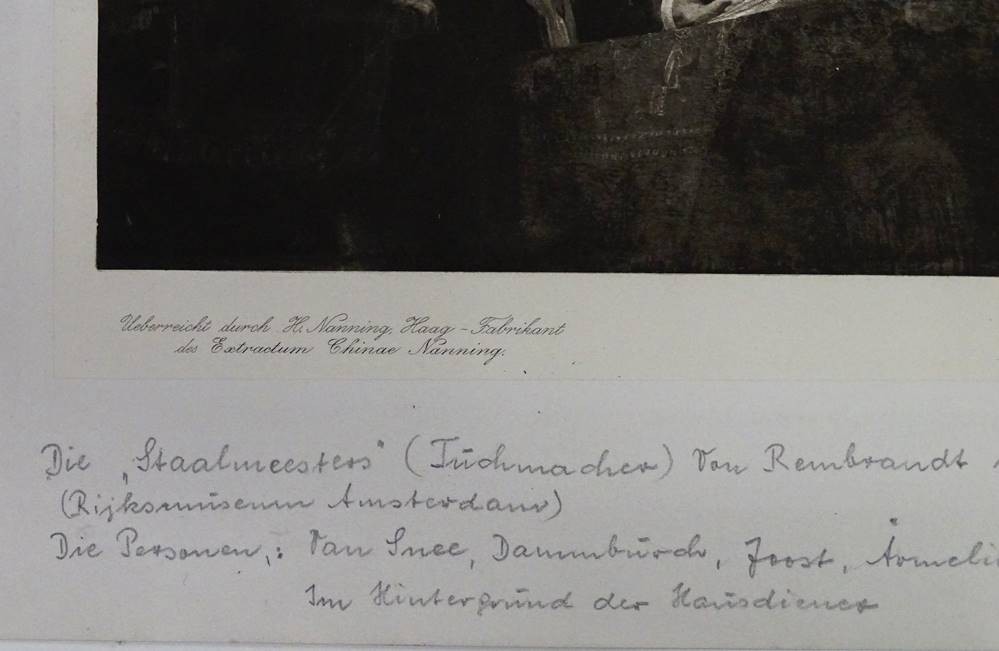 Ueberreicht durch H. Nanning, Haag - Fabrikant
des Extractum Chinae Nanning.
Die „Staalmeesters" (Tuchmacher) Von Rembrandt
(Rijksmuseum Amsterdam)
Die Personen,: Van Snee, Dammburch, Joost,
Im Hintergrund der Hausdiener